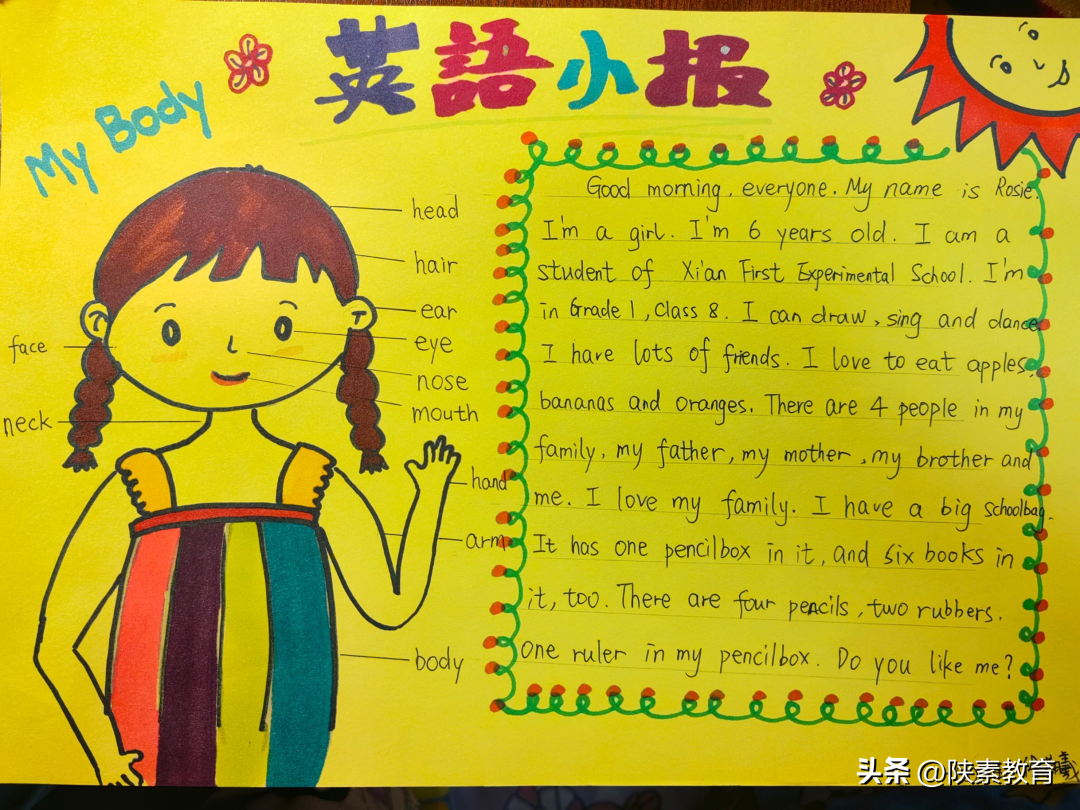 英語小报
My Body
head
hair
ear
eye
nose
mouth
face
neck
hand
arm
body
Good morning, everyone. My name is Rosie.
I'm a girl. I'm 6 years old. I am a
student of Xi'an First Experimental School. I'm
in Grade 1, Class 8. I can draw, sing and dance.
I have lots of friends. I love to eat apples,
bananas and oranges. There are 4 people in my
family, my father, my mother, my brother and
me. I love my family. I have a big schoolbag.
It has one pencilbox in it, and six books in
it, too. There are four pencils, two rubbers.
One ruler in my pencilbox. Do you like me?
头条 @陕素教育